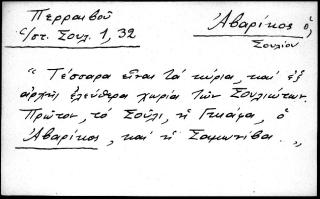 Περραιβοῦ
Ἱστ. Σουλ. 1, 32
Ἀβαρίκος ὁ,
Σουλίου
" Τέσσαρα εἶναι τά κύρια, καί ἐξ
ἀρχῆς ἐλεύθερα χωρία τῶν Σουλιώτων.
Πρῶτον, τό Σοῦλι, ἡ Γκιάφα, ὁ
Ἀβαρίκος, καί ἡ Σαμωνίβα. "